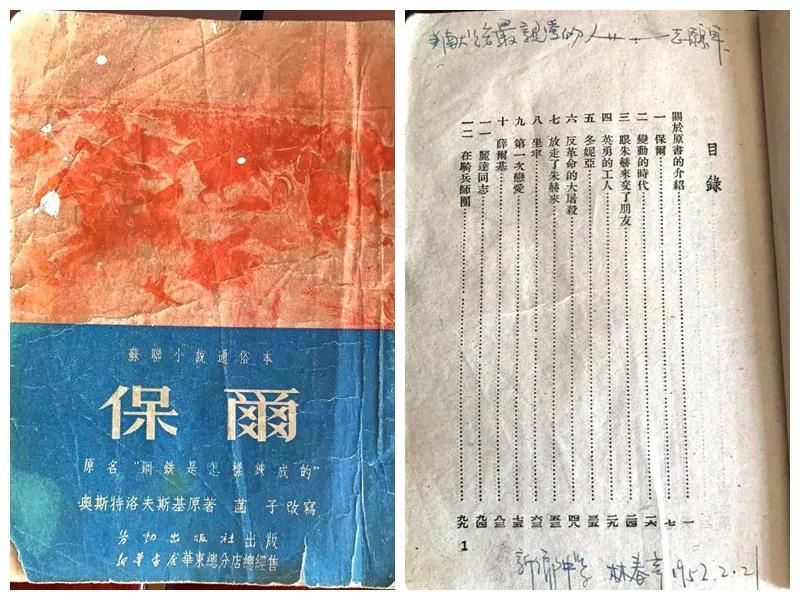 蘇聯小說通俗本
保爾
原名“鋼鉄是怎樣鍊成的”
奧斯特洛夫斯基原著 菡子改寫
勞動出版社出版
新華書店華東總分店總經售
献给最親愛的人——志願軍
目錄
關於原書的介紹……一
一 保爾……七
二 變動的時代……一六
三 跟朱赫來交了朋友……二四
四 英勇的工人……二九
五 冬妮亞……三五
六 反革命的大屠殺……四八
七 放走了朱赫來……五三
八 坐牢……六三
九 第一次戀愛……七五
十 薛爾基……八三
一一 麗達同志……九四
一二 在騎兵師團……九九
1
中学 林春 1952.2.21